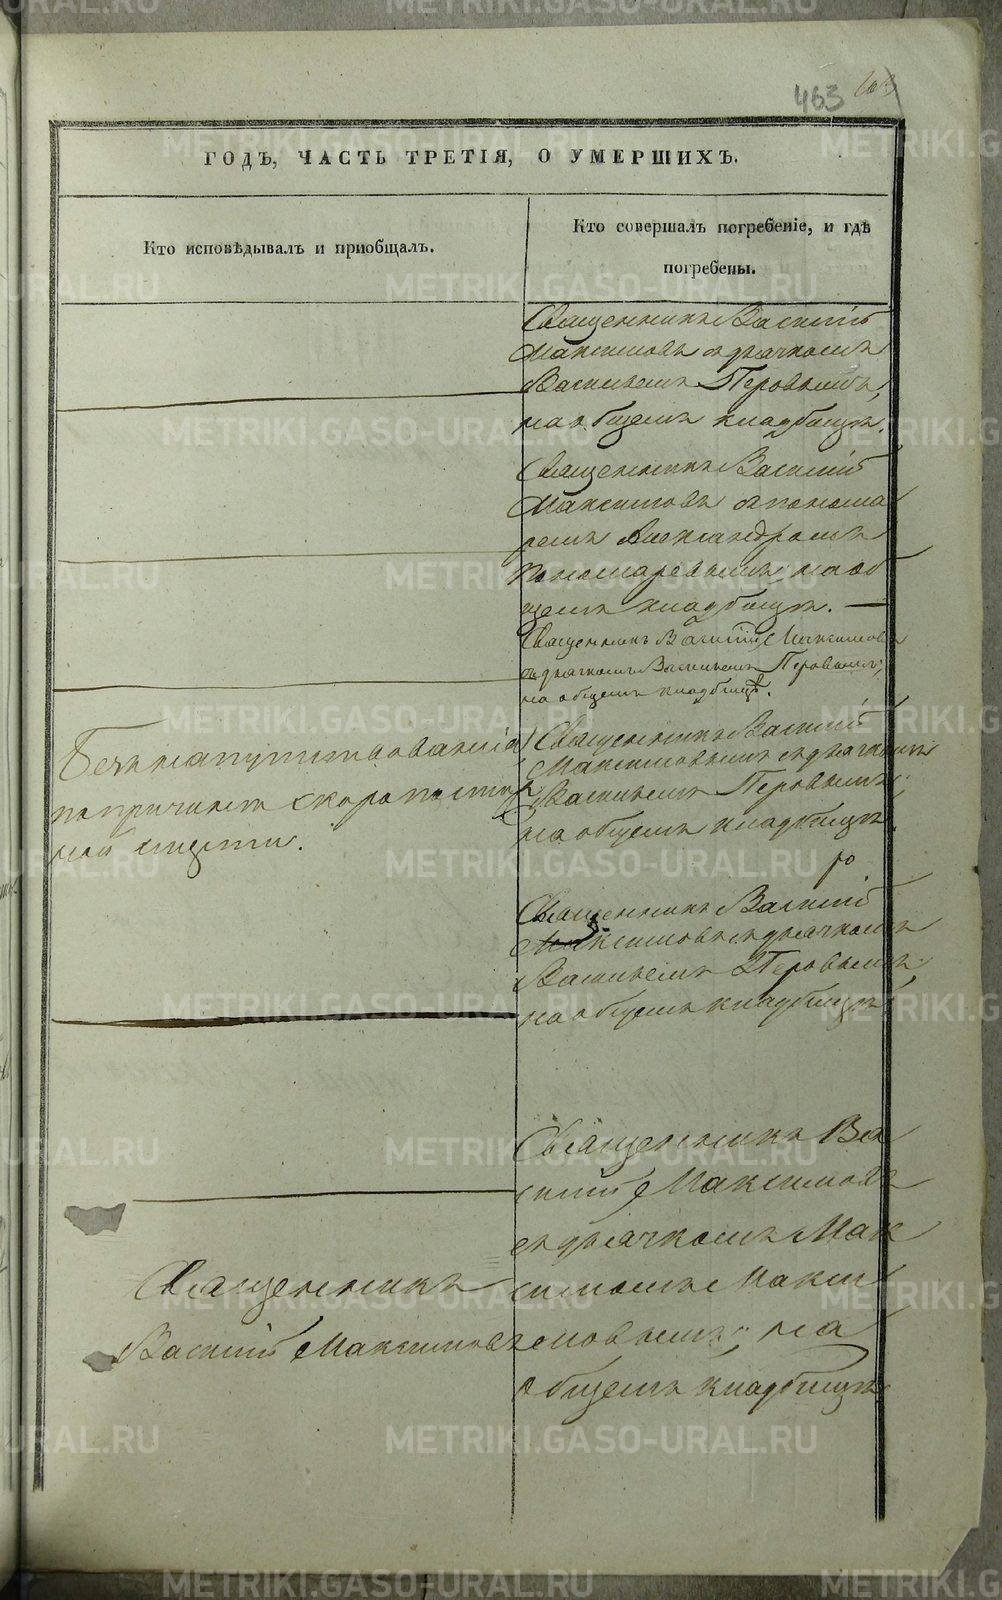 463
ГОДЪ, ЧАСТЬ ТРЕТІЯ, О УМЕРШИХЪ.
Кто исповѣдывалъ и пріобщалъ.
Кто совершалъ погребеніе, и гдѣ
погребены.
Священникъ Василій
Максимовъ съ дьячкомъ
Васильемъ Перовымъ,
на общемъ кладбищѣ.
Священникъ Василій
Максимовъ съ понома
ремъ Александромъ
Пономаревымъ; на об
щемъ кладбищѣ.
Священникъ Василій Максимовъ
съ дьячкомъ Васильемъ Перовымъ;
на общемъ кладбищѣ.
Безъ напутствованія
по причинѣ скоропостиж
ной смерти.
Священникъ Василій
Максимовымъ съ дьячкомъ
Васильемъ Перовымъ;
на общемъ кладбищѣ.
Священникъ Василій
Максимовъ съ дьячкомъ
Васильемъ Перовымъ;
на общемъ кладбищѣ.
Священникъ
Василій Максимовъ
Священникъ Ва
силій Максимовъ
съ дьячкомъ Мак
симомъ Макси
мовымъ; на
общемъ кладбищѣ
METRIKI.GASO-URAL.RU